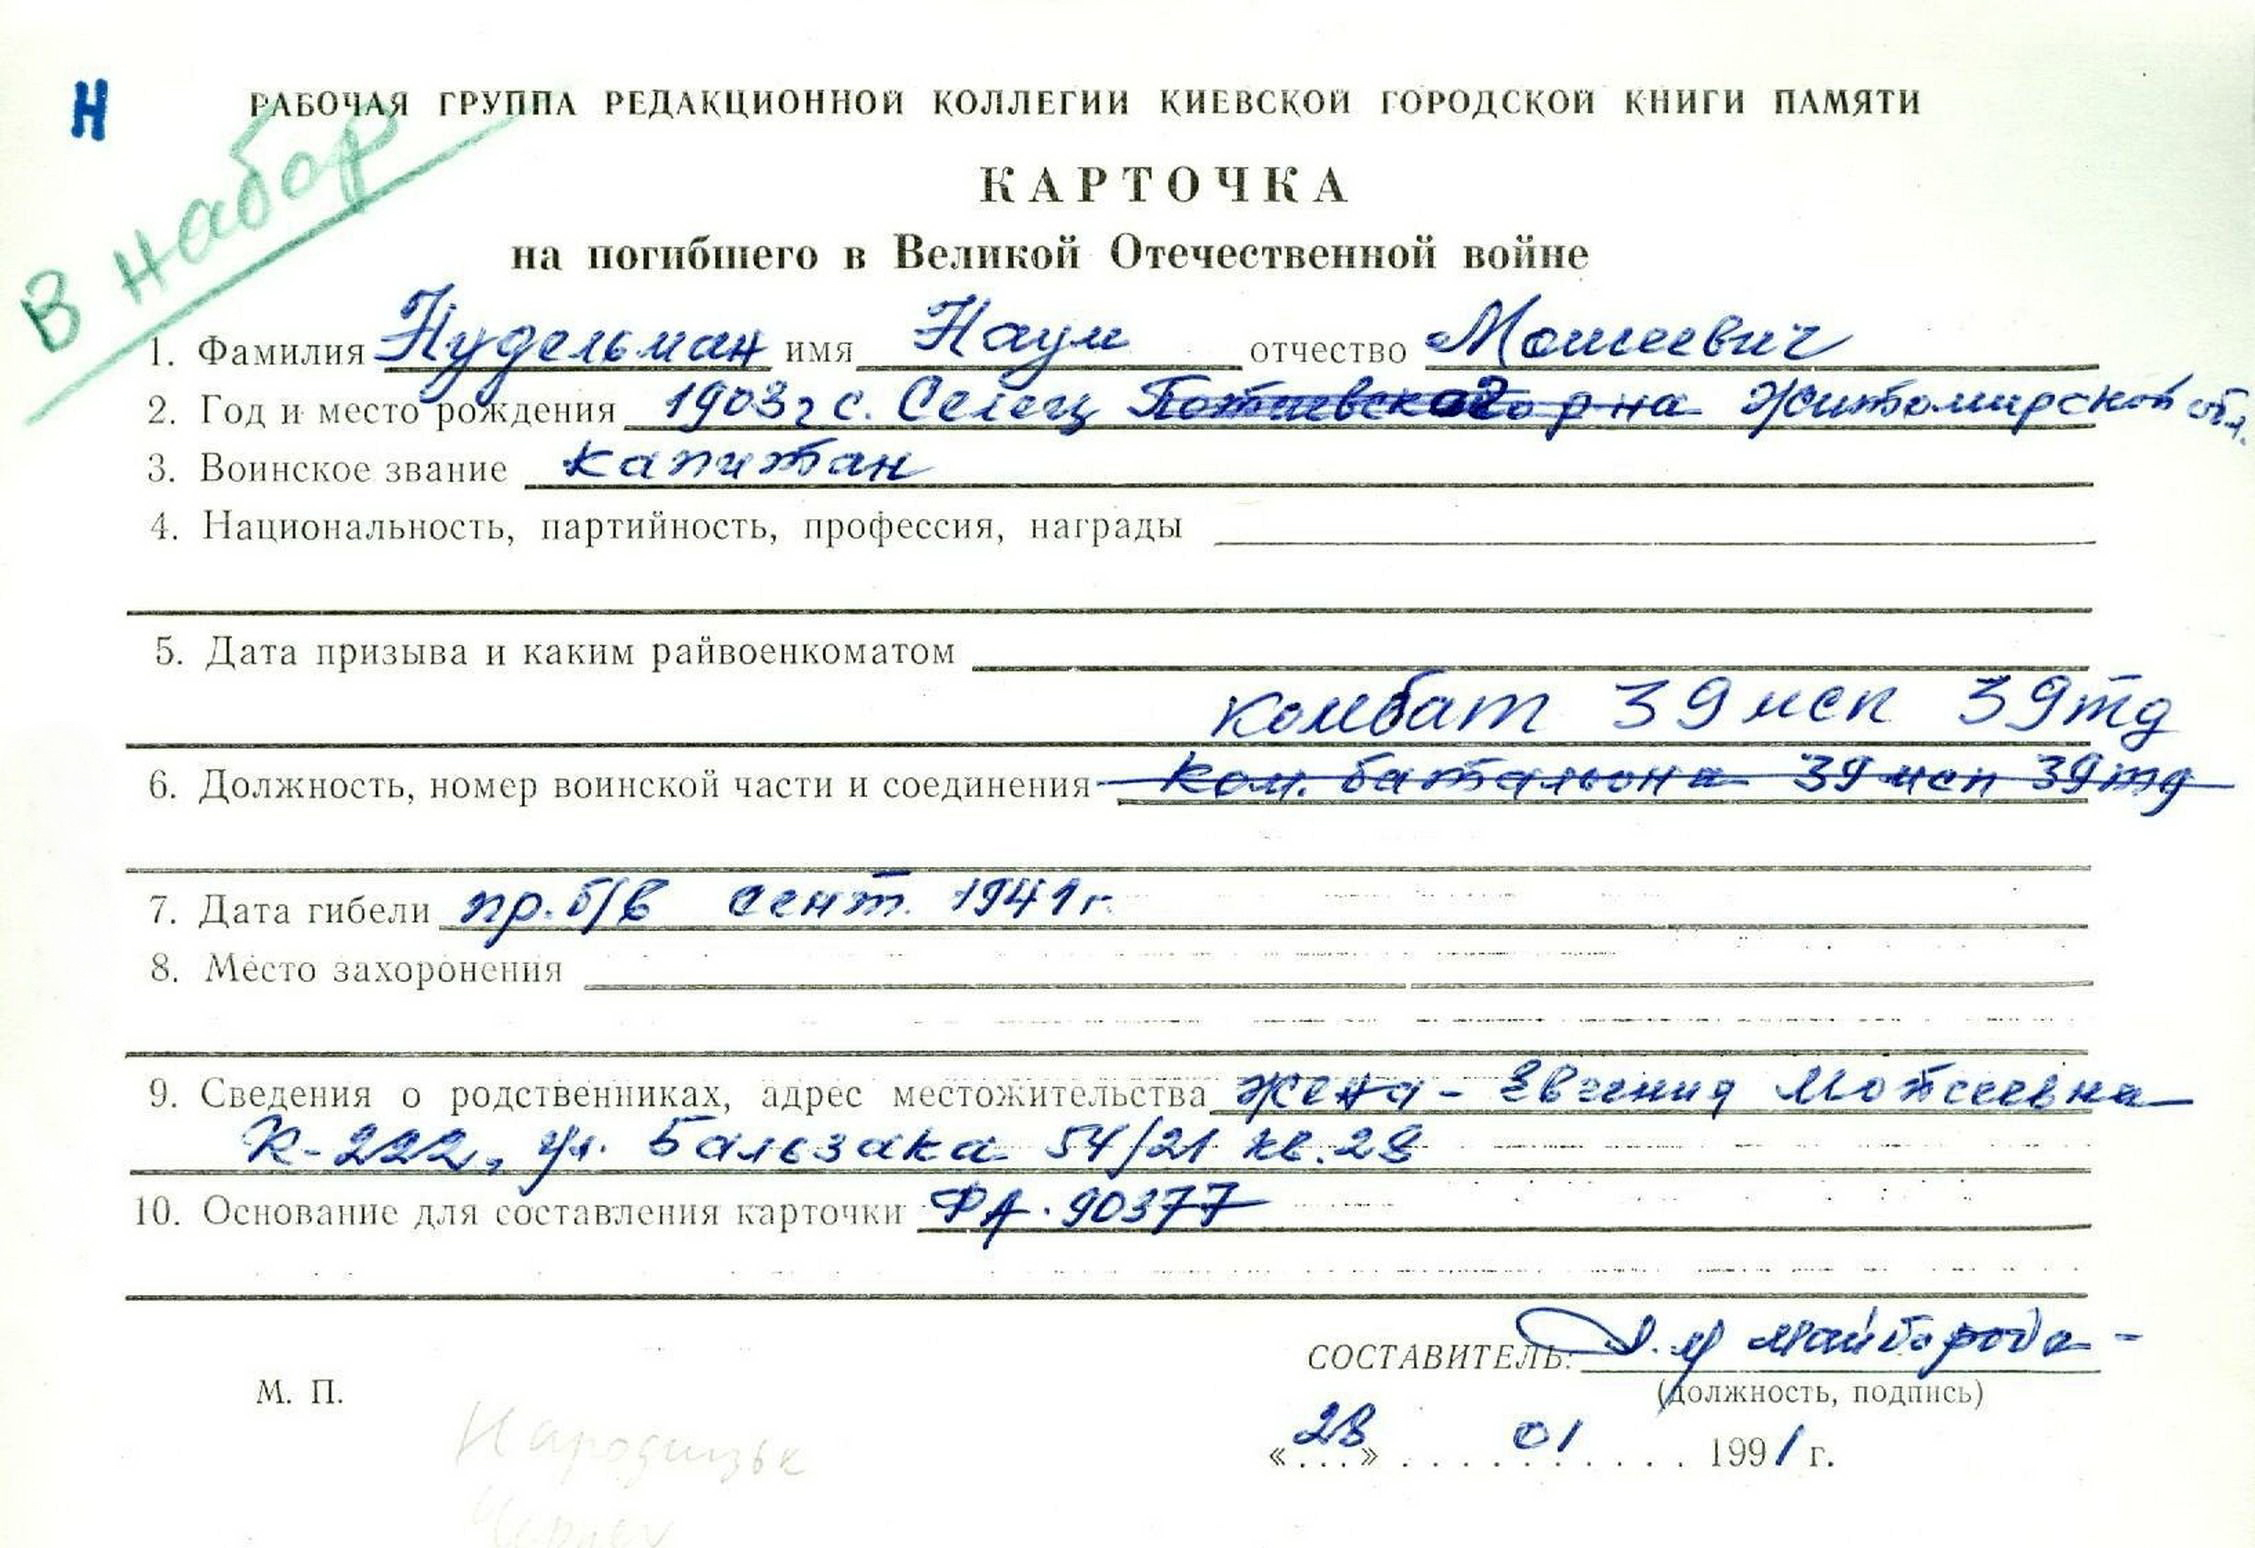 Н
РАБОЧАЯ ГРУППА РЕДАКЦИОННОЙ КОЛЛЕГИИ КИЕВСКОЙ ГОРОДСКОЙ КНИГИ ПАМЯТИ
В набор
КАРТОЧКА
на погибшего в Великой Отечественной войне
1. Фамилия Нудельман имя Наум отчество Моисеевич
2. Год и место рождения 1903г с. Селец Потиевского р на Житомирской обл.
3. Воинское звание капитан
4. Национальность, партийность, профессия, награды
5. Дата призыва и каким райвоенкоматом
комбат 39 мсп 39тд
6. Должность, номер воинской части и соединения ком. батальона 39 мсп 39тд
7. Дата гибели пр. б/в сент. 1941г.
8. Место захоронения
9. Сведения о родственниках, адрес местожительства жена - Евгения Мотсеевна
К-222, ул. Бальзака 54/21 кв. 28
10. Основание для составления карточки ФА. 90377
СОСТАВИТЕЛЬ: Майборода
(должность, подпись)
М. П.
«28» 01 1991 г.
Народицьк